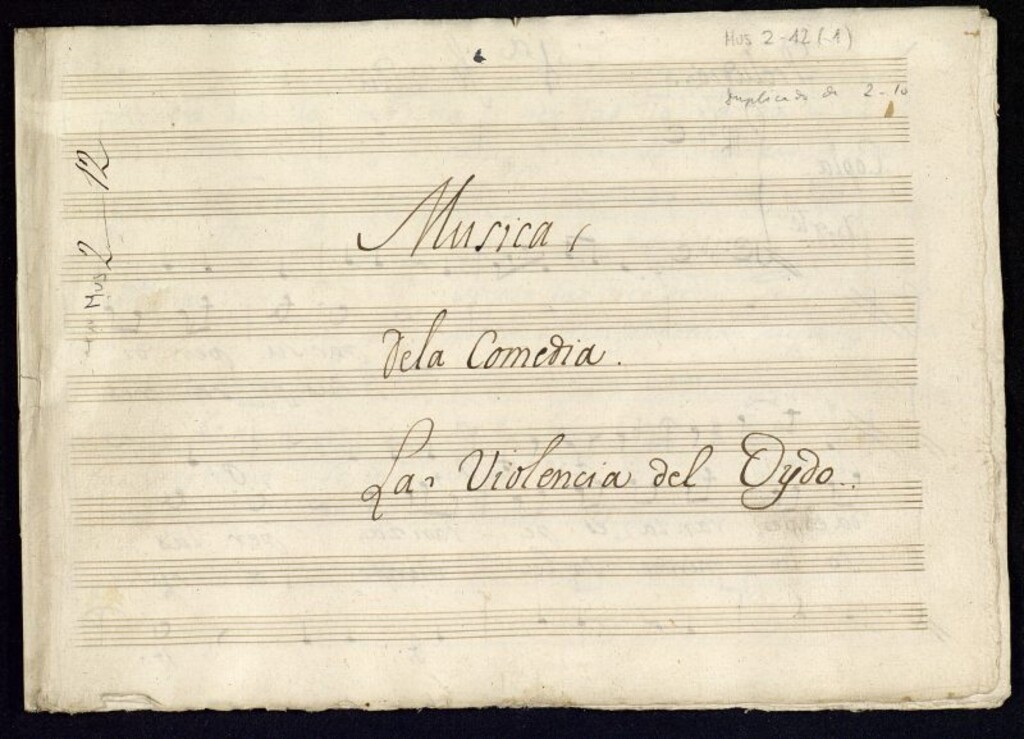 Mus 2-12 (1)
duplicado de 2-10
Mus 2-12
Musica,
dela Comedia.
La Violencia del Oydo.